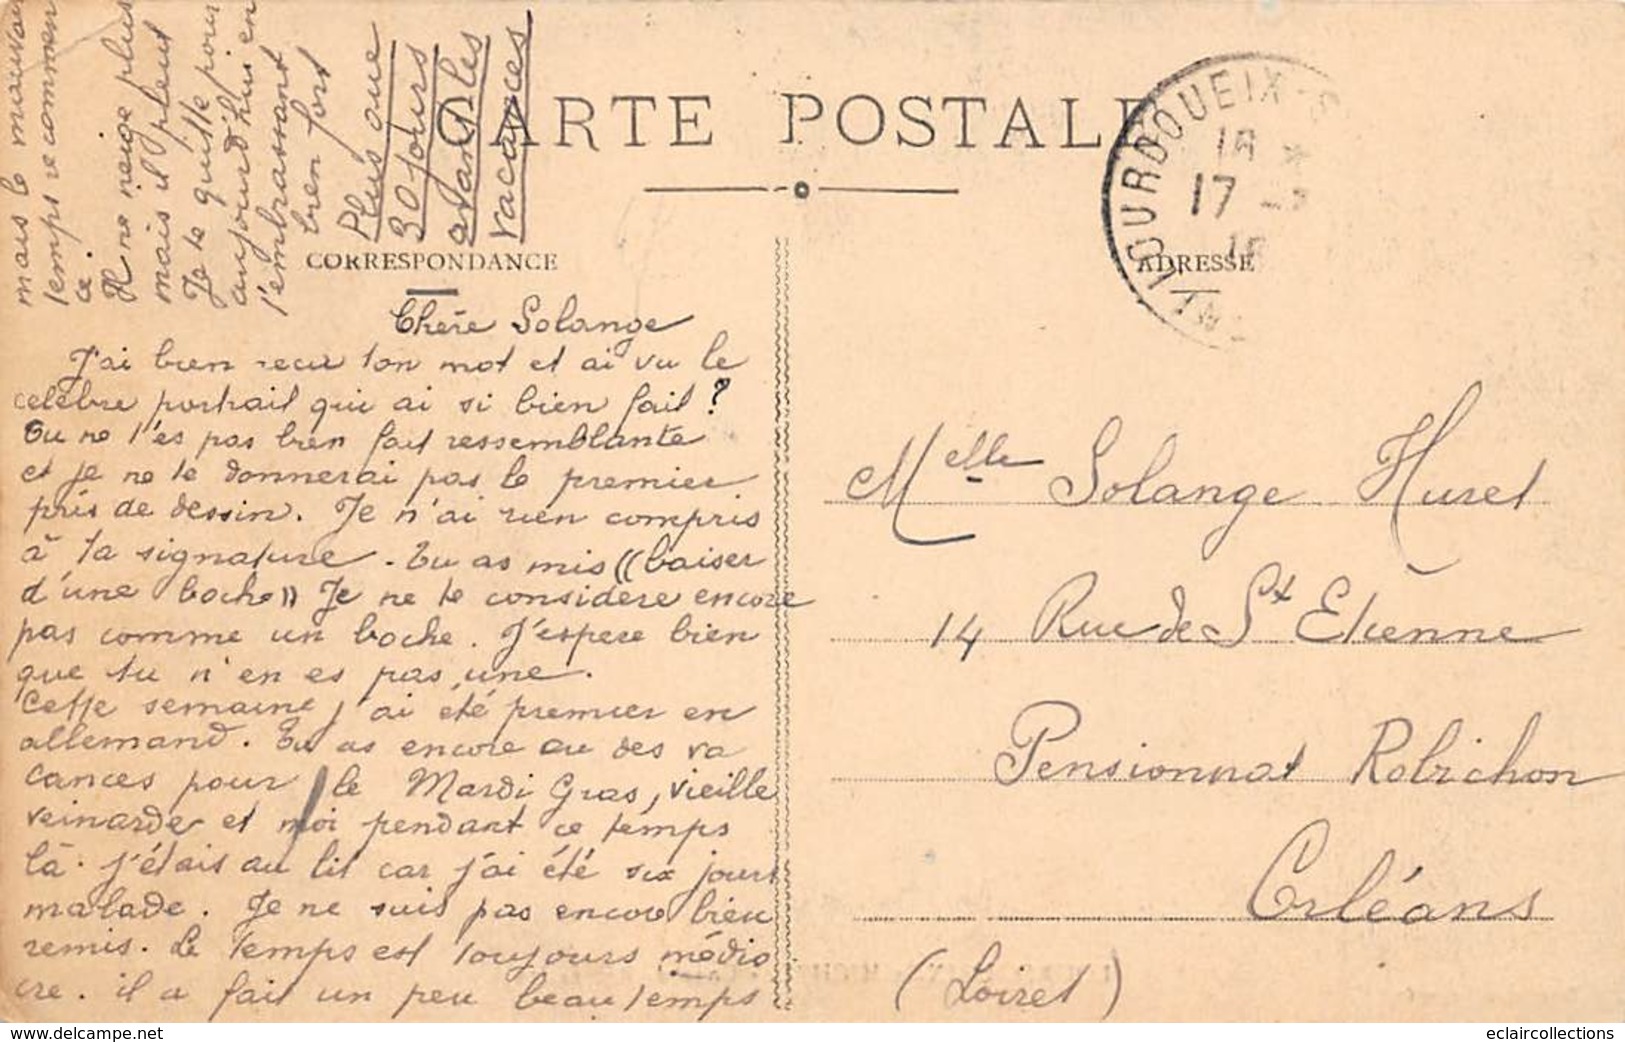 CARTE POSTALE
CORRESPONDANCE
ADRESSE
LOURDOUEIX-S
18 *
17 -
Chère Solange
J'ai bien recu ton mot et ai vu le
celèbre portrait qui ai si bien fait ?
Tu ne t'es pas bien fait ressemblante
et je ne te donnerai pas le premier
prix de dessin. Je n'ai rien compris
à ta signature - Tu as mis ((baiser
d'une boche)) Je ne te considere encore
pas comme un boche. J'espere bien
que tu n'en es pas une.
Cette semaine j'ai été premier en
allemand. Tu as encore au des va
cances pour le Mardi Gras, vieille
veinarde et moi pendant ce temps
là. j'étais au lit car j'ai été six jours
malade. Je ne suis pas encore bien
remis. Le temps est toujours médio
cre. il a fait un peu beau temps
mais le mauvais
temps recommen
ce.
Il ne neige plus
mais il pleut
Je te quitte pour
aujourd'hui en
t'embrassant
bien fort
Plus que
30 jours
avant les
vacances
Melle Solange Huret
14 Rue de St Etienne
Pensionnat Robichon
Orléans
(Loiret)
www.delcampe.net
eclaircollections